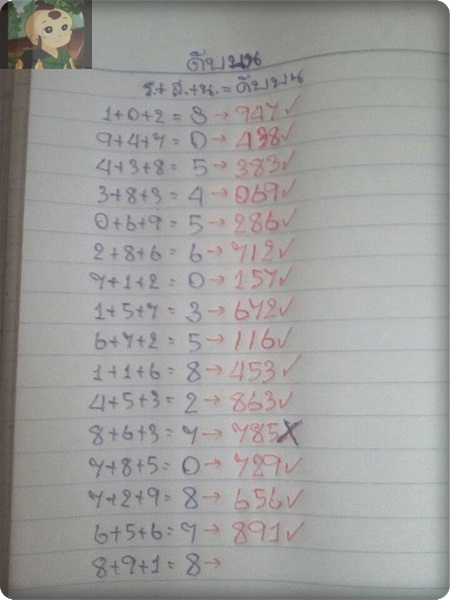 ดับบน
ร.+ส.+น.=ดับบน
1+0+2=3→947✓
9+4+7=0→438✓
4+3+8=5→383✓
3+8+3=4→069✓
0+6+9=5→286✓
2+8+6=6→712✓
7+1+2=0→157✓
1+5+7=3→672✓
6+7+2=5→116✓
1+1+6=8→453✓
4+5+3=2→863✓
8+6+3=7→785✗
7+8+5=0→729✓
7+2+9=8→656✓
6+5+6=7→891✓
8+9+1=8→